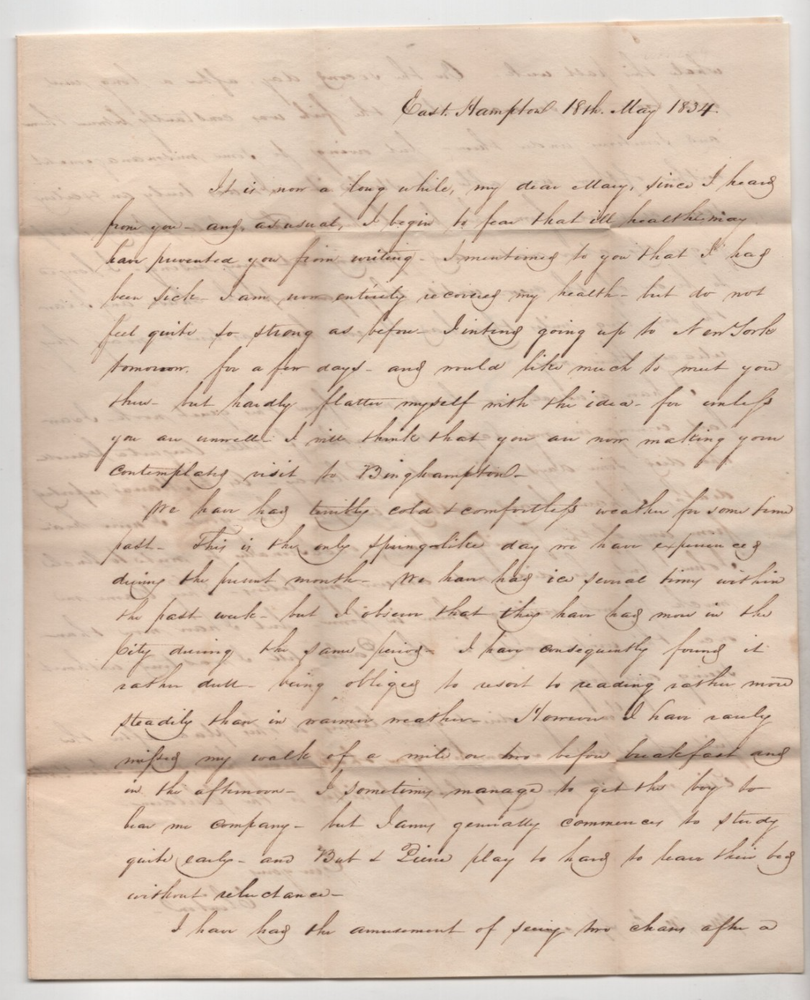 East Hampton 18th. May 1834.
It is now a long while, my dear Mary, since I heard
from you - and, as usual, I begin to fear that ill health may
have prevented you from writing - I mentioned to you that I had
been sick - I am now entirely recovered my health - but do not
feel quite so strong as before. I intend going up to New York
tomorrow, for a few days - and would like much to meet you
there - but hardly flatter myself with the idea - for unless
you are unwell I will think that you are now making your
contemplated visit to Binghampton -
We have had terribly cold & comfortless weather for some time
past - This is the only springlike day we have experienced
during the present month - We have had ice several times within
the past week - but I observe that they have had more in the
City during the same period - I have consequently found it
rather dull - being obliged to resort to reading rather more
steadily than in warmer weather - However I have rarely
missed my walk of a mile or two before breakfast and
in the afternoon - I sometimes manage to get the boy to
bear me company - but James generally commences to study
quite early - and Bat & Pierre play to hard to leave their bed
without reluctance -
I have had the amusement of seeing two chases after a